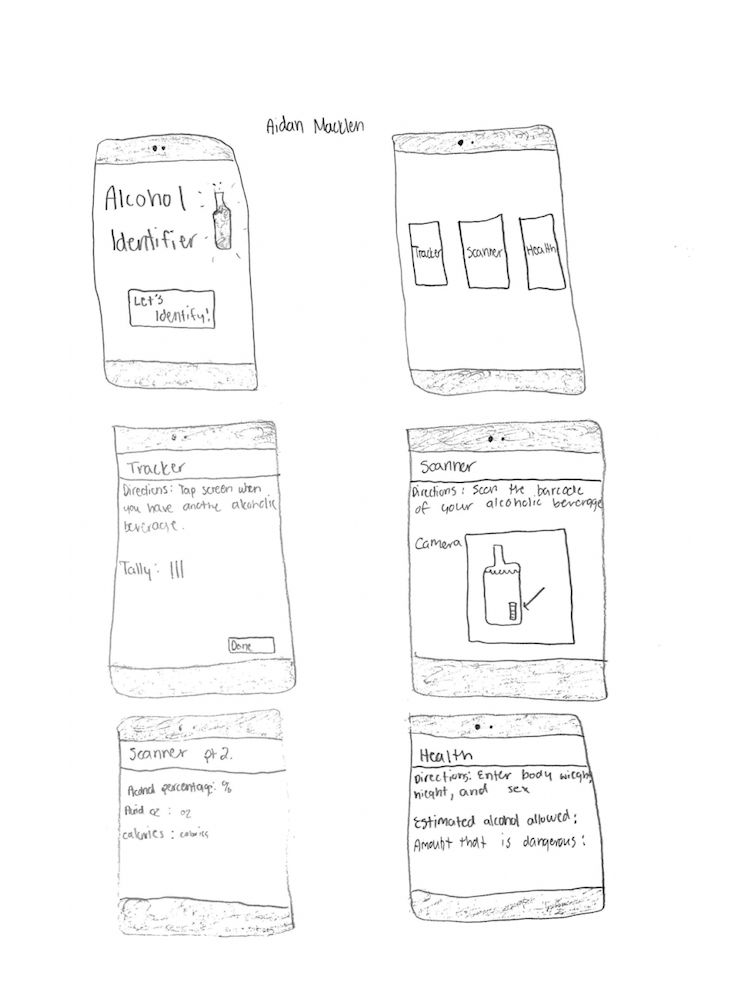 Aidan Macklen
Alcohol
Identifier
Let's
Identify!
Tracker
Scanner
Health
Tracker
Directions: Tap screen when
you have anothe alcoholic
beverage.
Tally: |||
Done
Scanner
Directions: Scan the barcode
of your alcoholic beverage
Camera
Scanner pt 2.
Alcohol percentage: %
fluid oz : oz
calories : calories
Health
Directions: Enter body wieght,
hieght, and sex
Estimated alcohol allowed:
Amount that is dangerous: